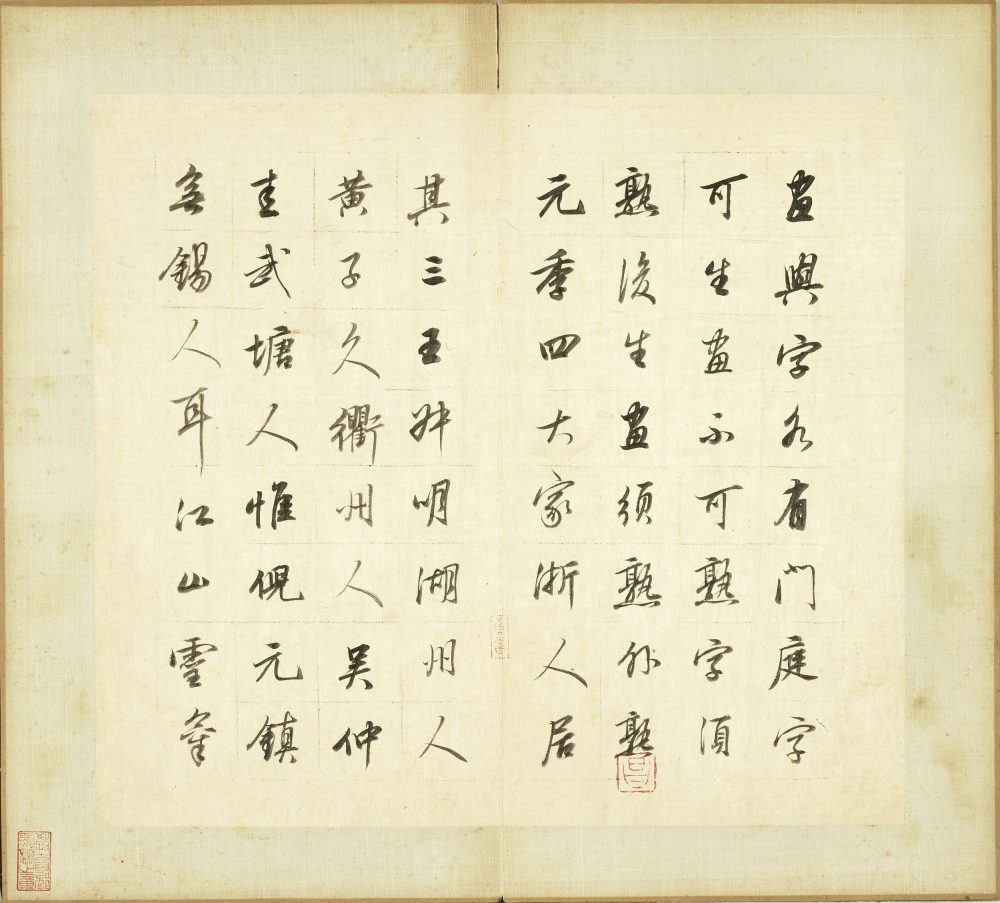 畫與字各有門庭字
可生畫不可熟字須
熟後生畫須熟外熟
元季四大家浙人居
其三王叔明湖州人
黃子久衢州人吳仲
圭武塘人惟倪元鎮
無錫人耳江山靈氣